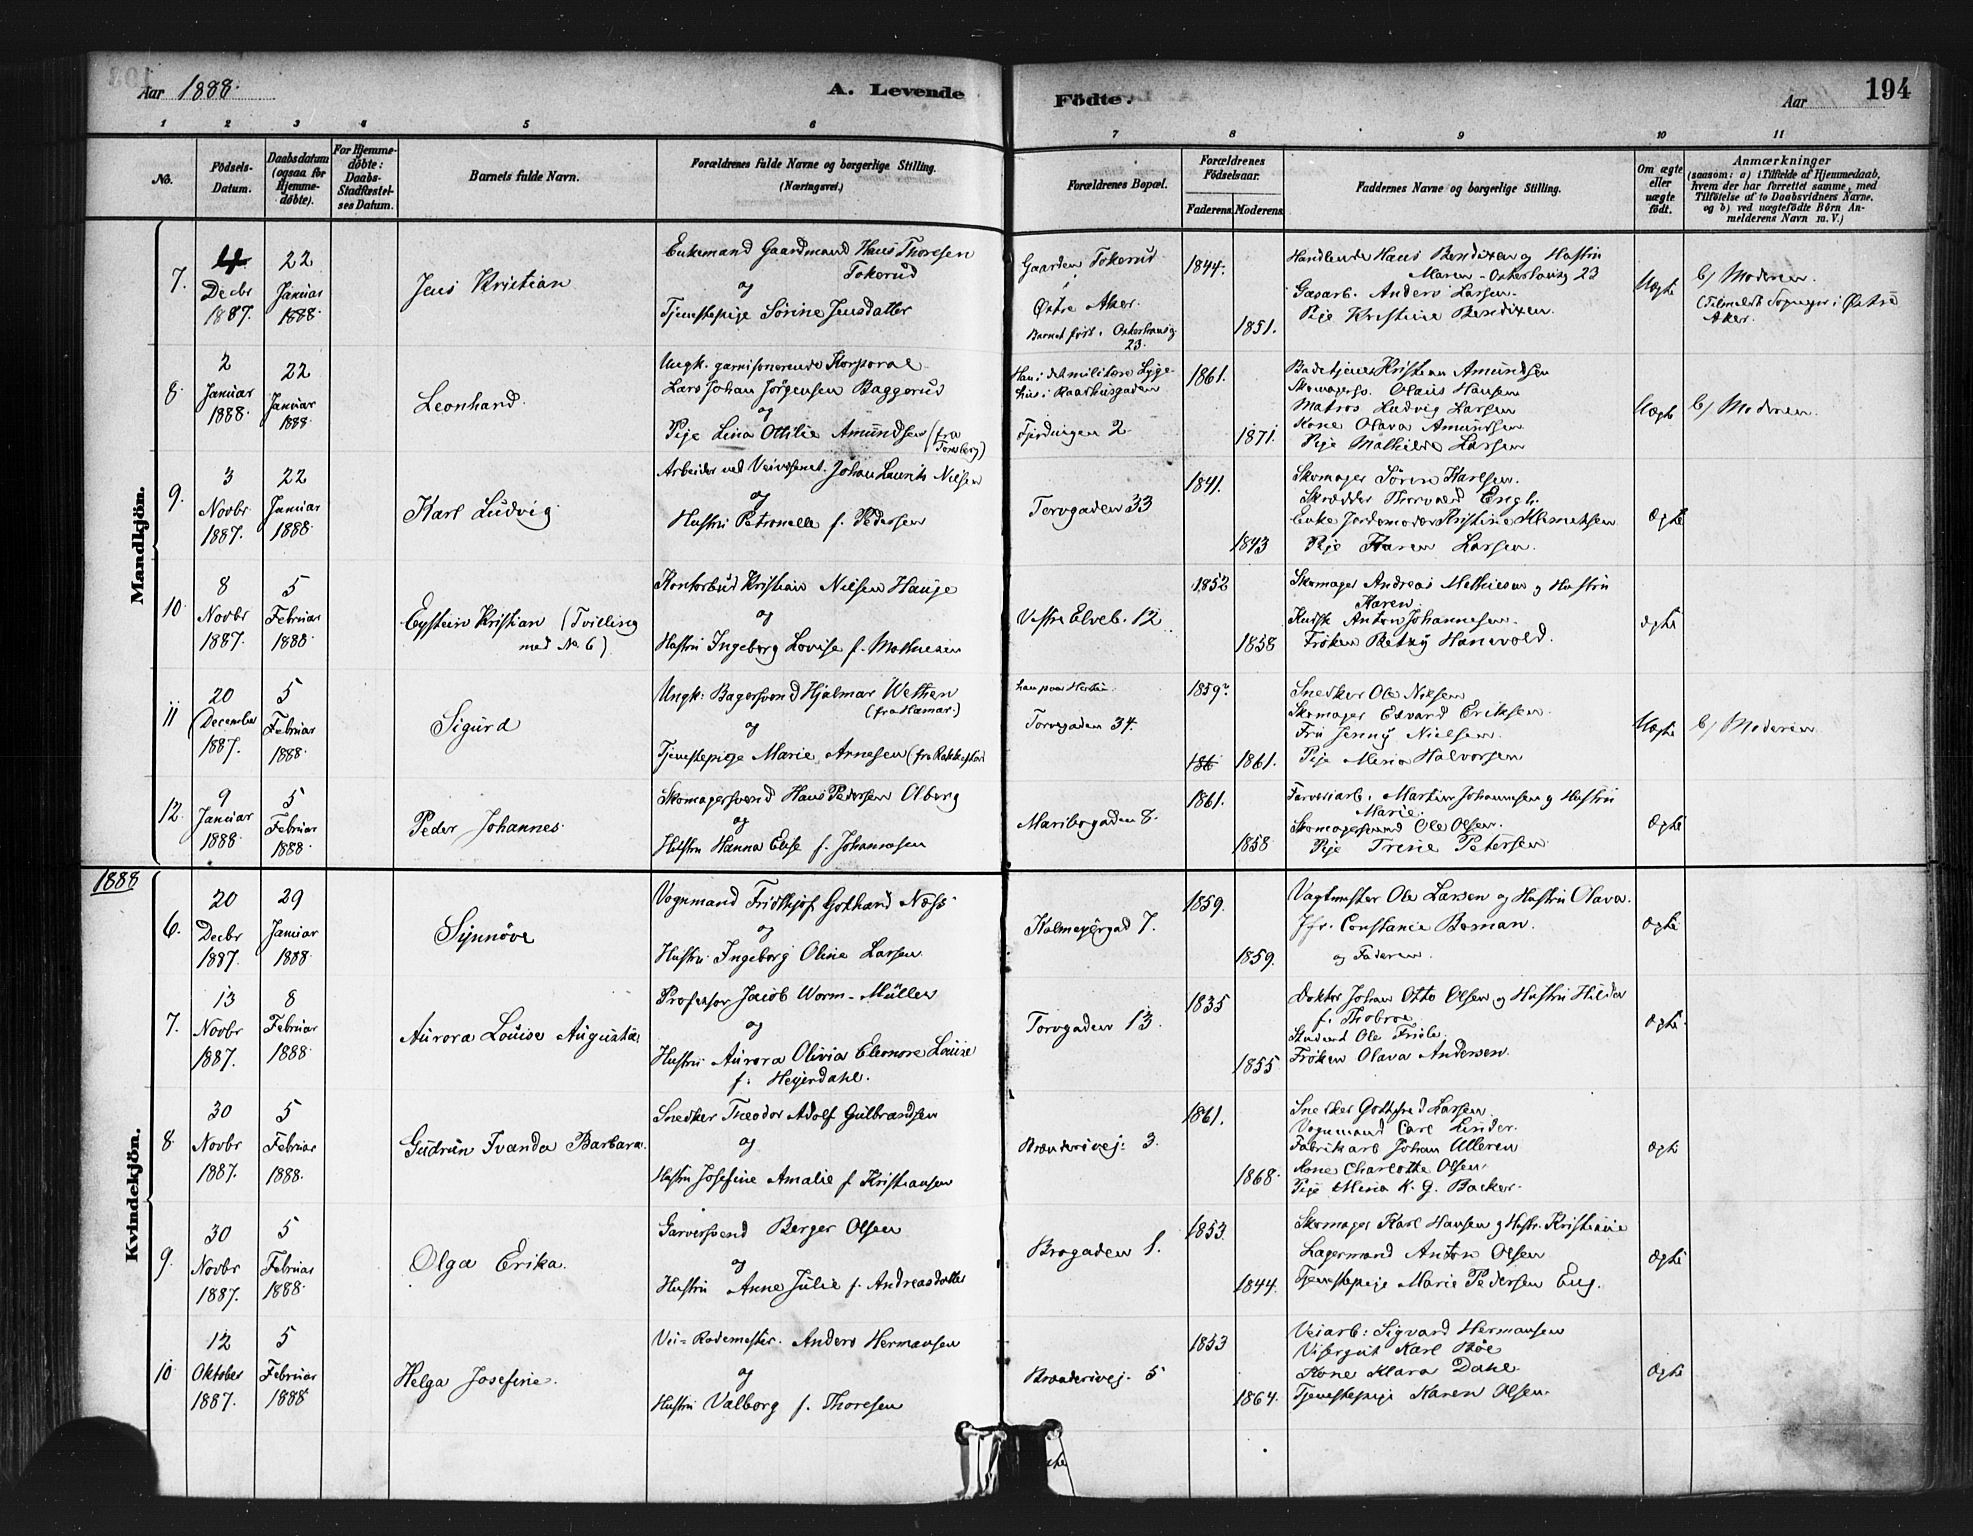 Aar 1888.
A. Levende
Födte.
Aar
194
1 2 3 4 5 6 7 8 9 10 11
No.
Födsels-Datum.
Daabsdatum (ogsaa for Hjemmedöbte).
For Hjemmedöbte: Daabs-Stadfæstelses Datum.
Barnets fulde Navn.
Forældrenes fulde Navne og borgerlige Stilling.
(Næringsvei.)
Forældrenes Bopæl.
Forældrenes Födselsaar.
Faderens. Moderens.
Faddernes Navne og borgerlige Stilling.
Om ægte eller uægte født.
Anmærkninger
(saasom: a) i Tilfælde af Hjemmedaab,
hvem der har forrettet samme, med
Tilföielse af to Daabsvidners Navne,
og b) ved uægtefödte Börn Anmelderens Navn m. V.)
Mandkjön.
7. 4 Decbr 1887. 22 Januar 1888. Jens Kristian
Enkemand Gaardmand Hans Thoresen
Tokerud
og
Tjenestepige Sörine Jensdatter
Gaarden Tokerud
i
Östre Aker.
Barnet født i Osterhausg
23.
1844. 1851.
Handlende Hans Bendixen og Hustru
Maren - Osterhausg 23
Gasarb. Anders Larsen.
Pige Kristine Bendixen.
Uægte
b/ Moderen.
(Tilmeldt Sogneprest i Østre
Aker.
8. 2 Januar 1888. 22 Januar 1888. Leonhard.
Ungk. garnisonerende Korporal
Lars Johan Jörgensen Baggerud
og
Pige Lina Ottilie Amundsen (fra
Tønsberg)
Han i det militære Syge-
hus i Raadhusgaden
Fjerdingen 2.
1861. 1871.
Badetjener Kristian Amundsen
Skomagersv. Olaus Hansen
Matros Ludvig Larsen
Kone Olava Amundsen
Pige Mathilde Larsen
Uægte
b/ Moderen.
9. 3 Novbr 1887. 22 Januar 1888. Karl Ludvig.
Arbeider ved Veivæsenet. Johan Laurits Nilsen
og
Hustru Petronelle f. Pedersen
Torvgaden 33
1841. 1843
Skomager Sören Karlsen.
Skrædder Thorvald Engh.
Enke Jordemoder Kristine Klemetsen
Pige Karen Larsen.
Ægte
10. 8 Novbr 1887. 5 Februar 1888. Eystein Kristian (Tvilling
med No 6)
Kontorbud Kristian Nilsen Hauge
og
Hustru Ingeborg Lovise f. Mathiesen
Vestre Elveb. 12
1852 1858
Skomager Andreas Mathiesen og Hustru
Karen
Kudsk Anton Johannesen.
Fröken Betzy Hanevold.
ægte
11 20 December 1887. 5 Februar 1888. Sigurd
Ungk: Bagersvend Hjalmar Wethen
(fra Hamar.)
og
Tjenestepige Marie Arnesen (fra Rakkestad
Torvgaden 34.
1859. 186 1861.
Snedker Ole Nilsen
Skomager Edvard Eriksen.
Fru Jenny Nielsen.
Pige Mina Halvorsen
Uægte
b/ Moderen
12. 9 Januar 1888 5 Februar 1888. Peder Johannes
Skomagersvend Hans Pedersen Olberg
og
Hustru Hanna Elise f. Johannesen
Maribogaden 8.
1861. 1858
Farveriarb. Martin Johannesen og Hustru
Marie.
Skomagersvend Ole Olsen.
Pige Trine Petersen
Ægte
1888
Kvindekjön.
6. 20 Decbr 1887. 29 Januar 1888. Synnöve
Vognmand Fridthjof Gothard Næss
og
Hustru Ingeborg Oline Larsen
Kalmeyergad 7.
1859. 1859.
Vagtmester Ole Larsen og Hustru Olava.
Jfr. Constance Boman.
og Faderen.
ægte
7. 13 Novbr 1887. 8 Februar 1888. Aurora Louise Augusta
Professor Jacob Worm-Müller
og
Hustru Aurora Olivia Eleonore Louise
f. Heyerdahl.
Torvgaden 13.
1835 1855
Doktor Johan Otto Olsen og Hustru Hilda
Student Ole Friele.
Fröken Olava Andersen.
ægte.
8. 30 Novbr 1887. 5 Februar 1888. Gudrun Ivanda Barbara.
Snedker Theodor Adolf Gulbrandsen
og
Hustru Josefine Amalie f Kristiansen
Brænderivej: 3.
1861. 1868.
Snedker Gottfred Larsen.
Vognmand Carl Linder.
Fabrikarb Johan Ulleren
Kone Charlotte Olsen.
Pige Mina K. G. Backer.
ægte
9. 30 Novbr 1887. 5 Februar 1888. Olga Erika.
Garversvend Berger Olsen
og
Hustru Anne Julie f. Andreasdatter
Brogaden 1.
1853. 1844.
Skomager Karl Hansen og Hustr. Kristiane
Lagermand Anton Olsen
Tjenestepige Marie Pedersen Eng.
Ægte
10 12 Oktober 1887. 5 Februar 1888 Helga Josefine.
Vei-Rodemester. Anders Hermansen
og
Hustru Valborg f. Thoresen
Brænderivej. 5
1853 1864.
Veiarb: Sigvard Hermansen
Visergut Karl Böe
Kone Klara Dahl.
Tjenestepige Karen Olsen.
Ægte